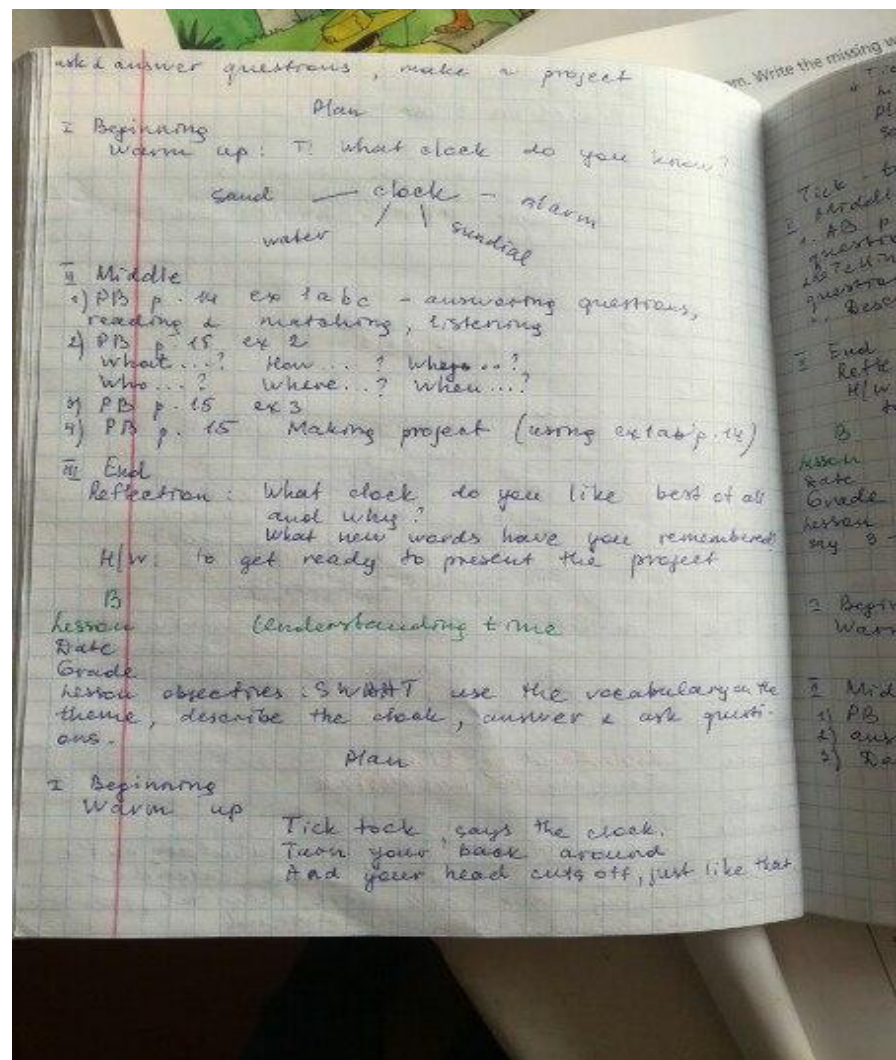 ask & answer questions, make a project
Plan
I Beginning
Warm up: T: What clock do you know?
sand — clock - alarm
water sundial
II Middle
1) PB p. 14 ex 1abc - answering questions,
reading & matching, listening
2) PB p. 15 ex 2
What...? How...? Whose...?
Who...? Where...? When...?
3) PB p. 15 ex 3
4) PB p. 15 Making project (using ex1ab p. 14)
III End
Reflection: What clock do you like best of all
and why?
What new words have you remembered?
H/w: to get ready to present the project
B
Lesson Understanding time
Date
Grade
Lesson objectives: SWBAT use the vocabulary on the
theme, describe the clock, answer & ask questi-
ons.
Plan
I Beginning
Warm up
Tick tock, says the clock.
Turn your back around
And your head cuts off, just like that
Write the missing
Tick -
Middle
1. AB p
End
H/w
B
Lesson
Date
Grade
Lesson
my 3 -
Warm
1) PB
2)
3)